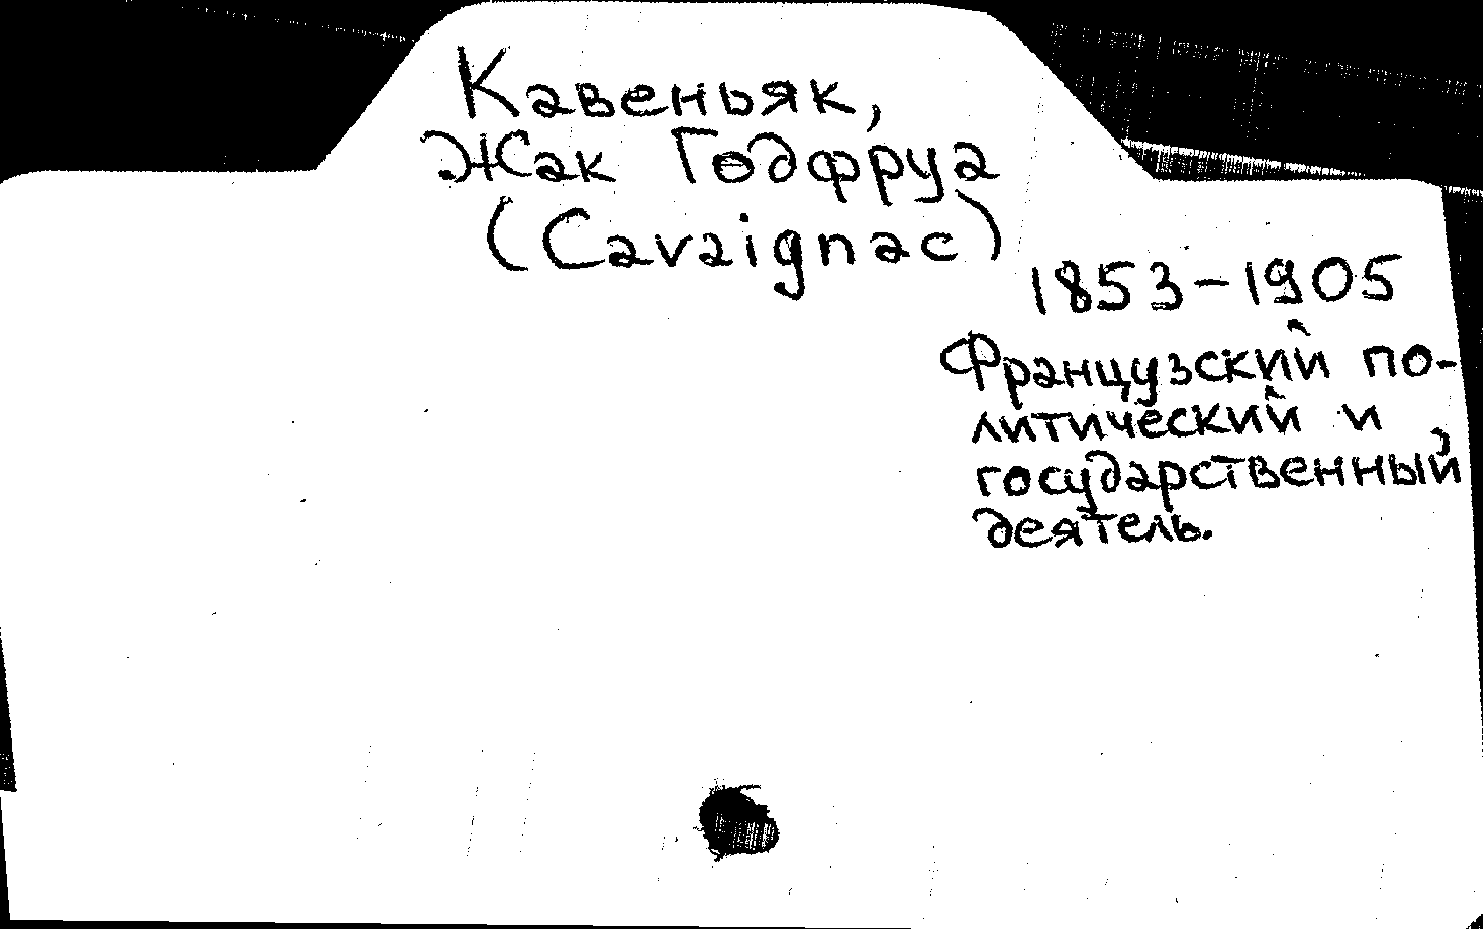 Кавеньяк,
Жак Годфруа
(Cavaignac)
1853-1905
Французский по-
литический и
государственный
деятель.